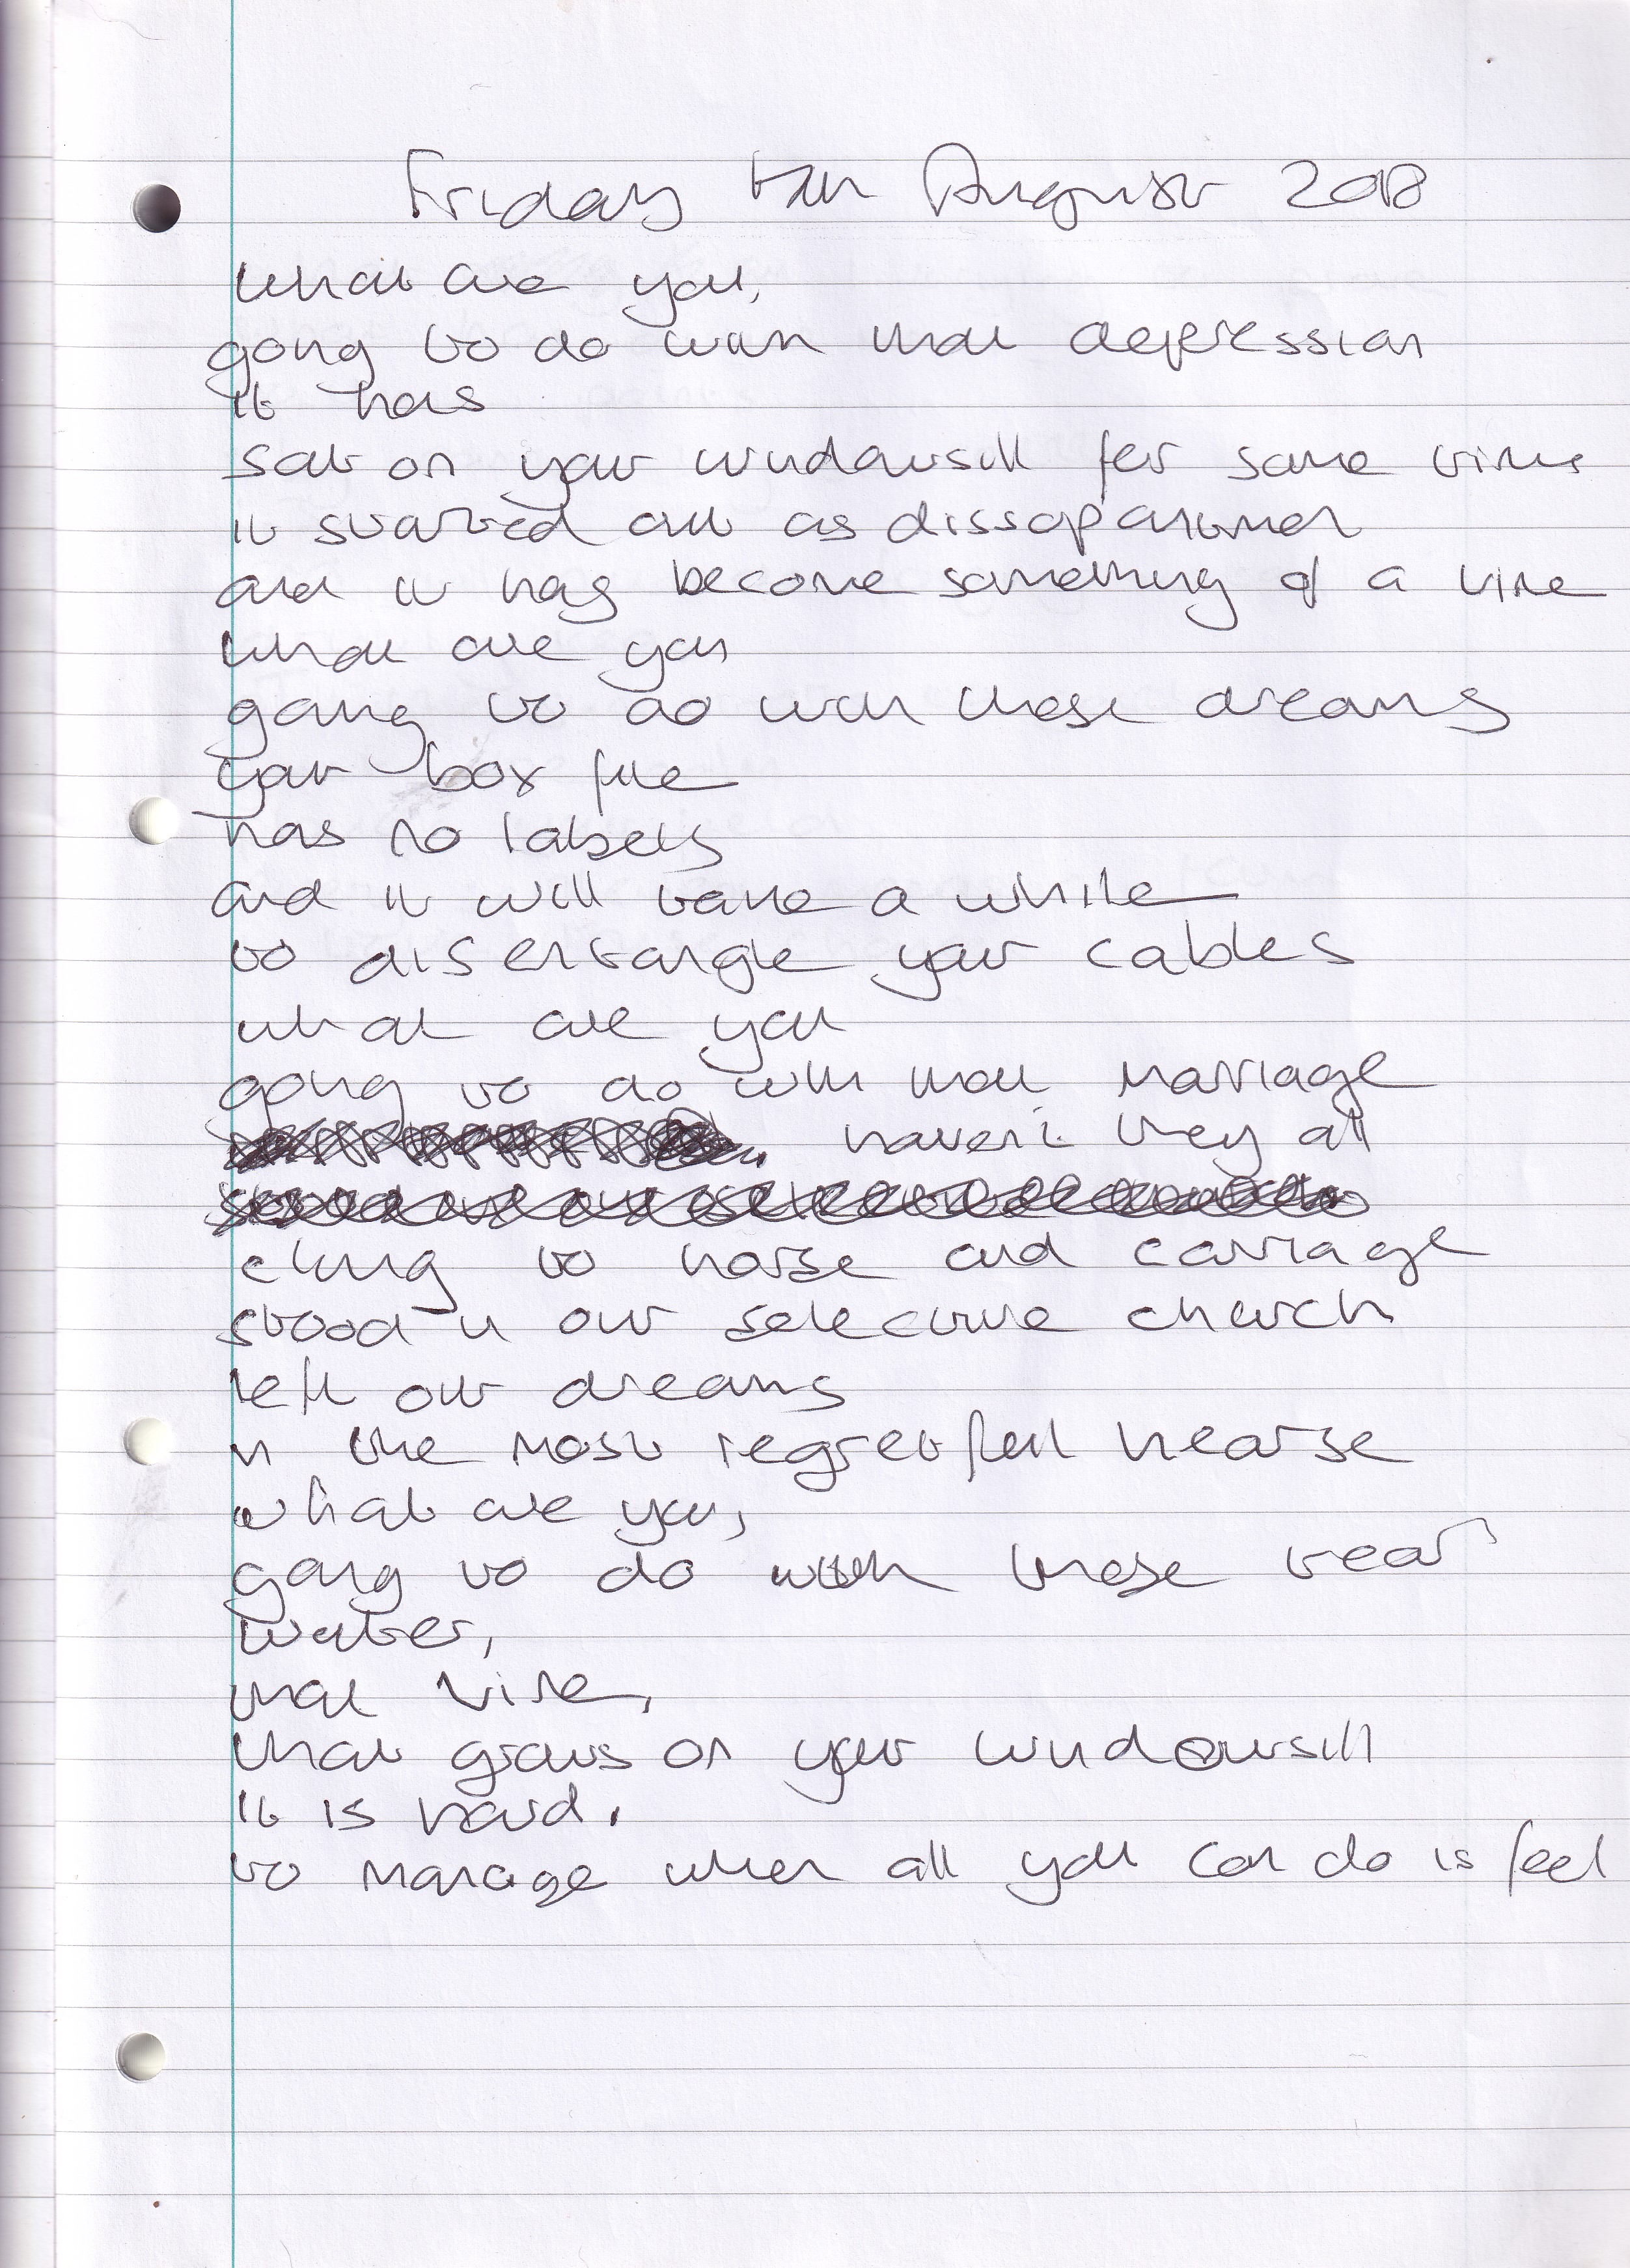 Friday August 2018
What are you,
going to do with that depression
it has
sat on your windowsill for some time
it started out as dissapointment
and it has become something of a vine
what are you
going to do with those dreams
your box file
has no labels
and it will take a while
to disentangle your cables
what are you
going to do with that marriage
haven't they all
clung to horse and carriage
stood in our selective church
left our dreams
in the most regretful hearse
what are you,
going to do with those tear
water,
that vine,
that grows on your windowsill
it is hard.
to manage when all you can do is feel